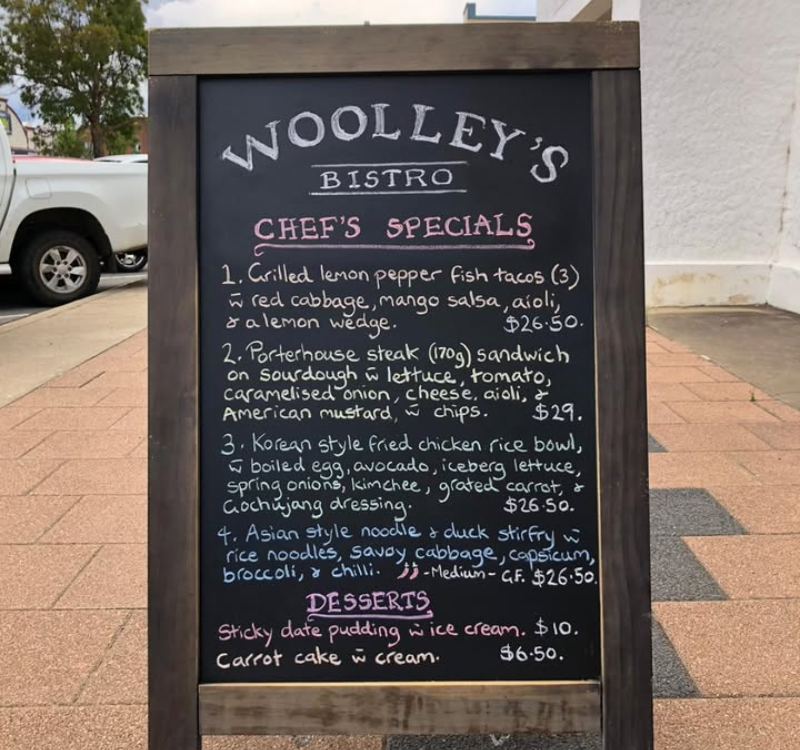 WOOLLEY'S
BISTRO
CHEF'S SPECIALS
1. Grilled lemon pepper fish tacos (3)
w̄ red cabbage, mango salsa, aioli,
& a lemon wedge. $26.50.
2. Porterhouse steak (170g) sandwich
on sourdough w̄ lettuce, tomato,
caramelised onion, cheese, aioli, &
American mustard, w̄ chips. $29.
3. Korean style fried chicken rice bowl,
w̄ boiled egg, avocado, iceberg lettuce,
spring onions, kimchee, grated carrot, &
Gochujang dressing. $26.50.
4. Asian style noodle & duck stirfry w̄
rice noodles, savoy cabbage, capsicum,
broccoli, & chilli. -Medium- G.F. $26.50.
DESSERTS
Sticky date pudding w̄ ice cream. $10.
Carrot cake w̄ cream. $6.50.